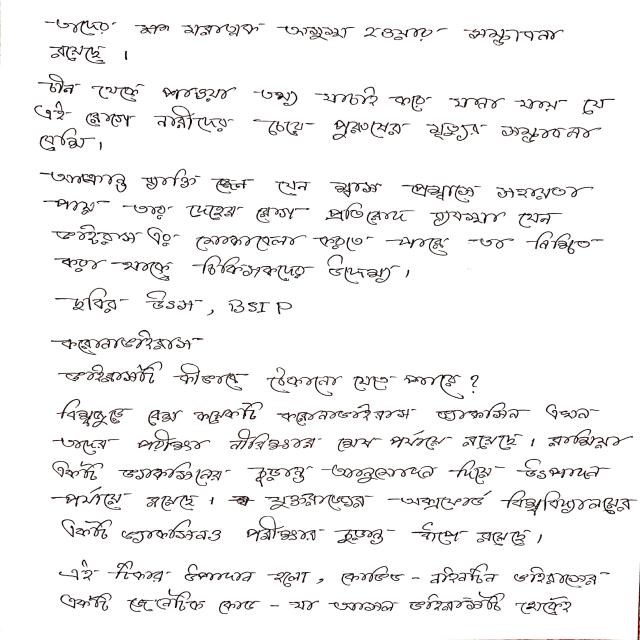 তাদের মধ্য মারাত্মক অসুস্থ হওয়ার সম্ভাবনা
রয়েছে ।
চীন থেকে পাওয়া তথ্য যাচাই করে জানা যায় যে
এই রোগে নারীদের চেয়ে পুরুষের মৃত্যুর সম্ভাবনা
বেশি।
আক্রান্ত ব্যক্তি যেন শ্বাস প্রশ্বাসে সহায়তা
পায় তার দেহের রোগ প্রতিরোধ ব্যবস্থা যেন
ভাইরাস এর মোকাবেলা করতে পারে তা নিশ্চিত
করা থাকে চিকিৎসকদের উদ্দেশ্য।
ছবির উৎস, BSIP
করোনাভাইরাস
ভাইরাসটি কীভাবে ঠেকানো যেতে পারে ?
বিশ্বজুড়ে বেশ কয়েকটি করোনাভাইরাস ভ্যাকসিন এখন
তাদের পরীক্ষা নীরিক্ষার শেষ পর্যায়ে রয়েছে। রাশিয়া
একটি ভ্যাকসিনের চূড়ান্ত অনুমোদন দিয়ে উৎপাদন
পর্যায়ে রয়েছে। যুক্তরাজ্যের অক্সফোর্ড বিশ্ববিদ্যালয়ের
একটি ভ্যাকসিনও পরীক্ষার চূড়ান্ত ধাপে রয়েছে।
এই টিকার উপাদান হলো, কোভিড - নাইনটিন ভাইরাসের
একটি জেনেটিক কোড - যা আসল ভাইরাসটি থেকেই